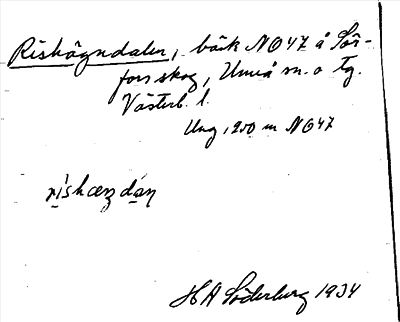 Riskägndalen, bäck NO47 å Sör-
fors skog, Umeå sn. o tg.
Västerb. l.
Ung, 1200 m NO47
H A Söderburg 1934